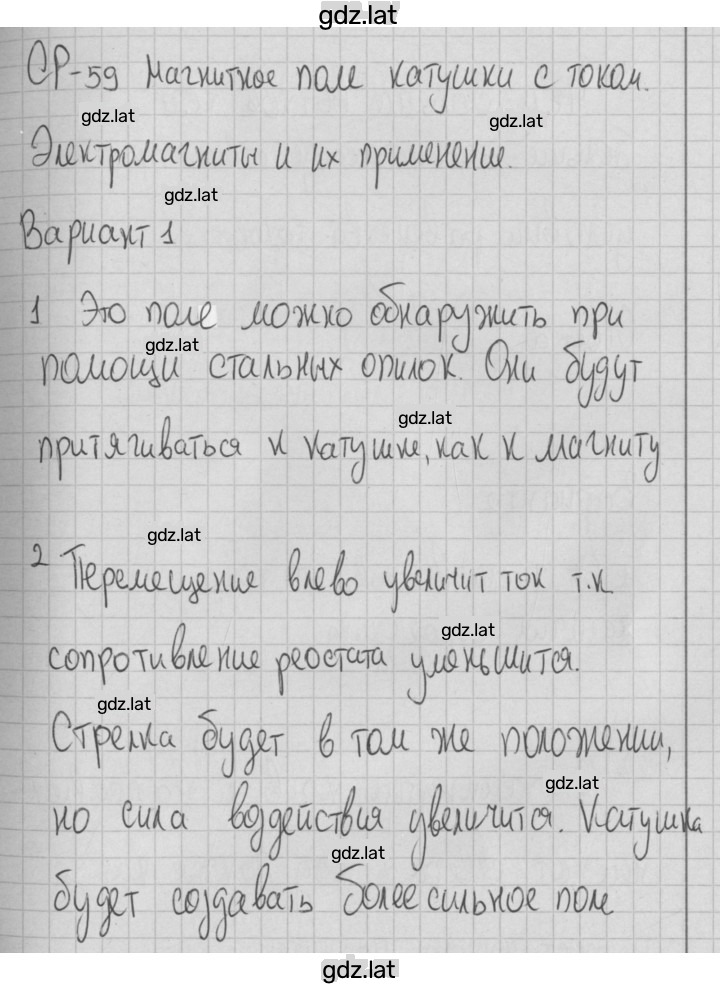 gdz.lat
СР-59 Магнитное поле катушки с током.
gdz.lat
gdz.lat
Электромагниты и их применение.
gdz.lat
Вариант 1
1 Это поле можно обнаружить при
gdz.lat
помощи стальных опилок. Они будут
gdz.lat
притягиваться к катушке, как к магниту
gdz.lat
2 Перемещение влево увеличит ток т.к
gdz.lat
сопротивление реостата уменьшится.
gdz.lat
Стрелка будет в том же положении,
gdz.lat
но сила воздействия увеличится. Катушка
gdz.lat
будет создавать более сильное поле
gdz.lat